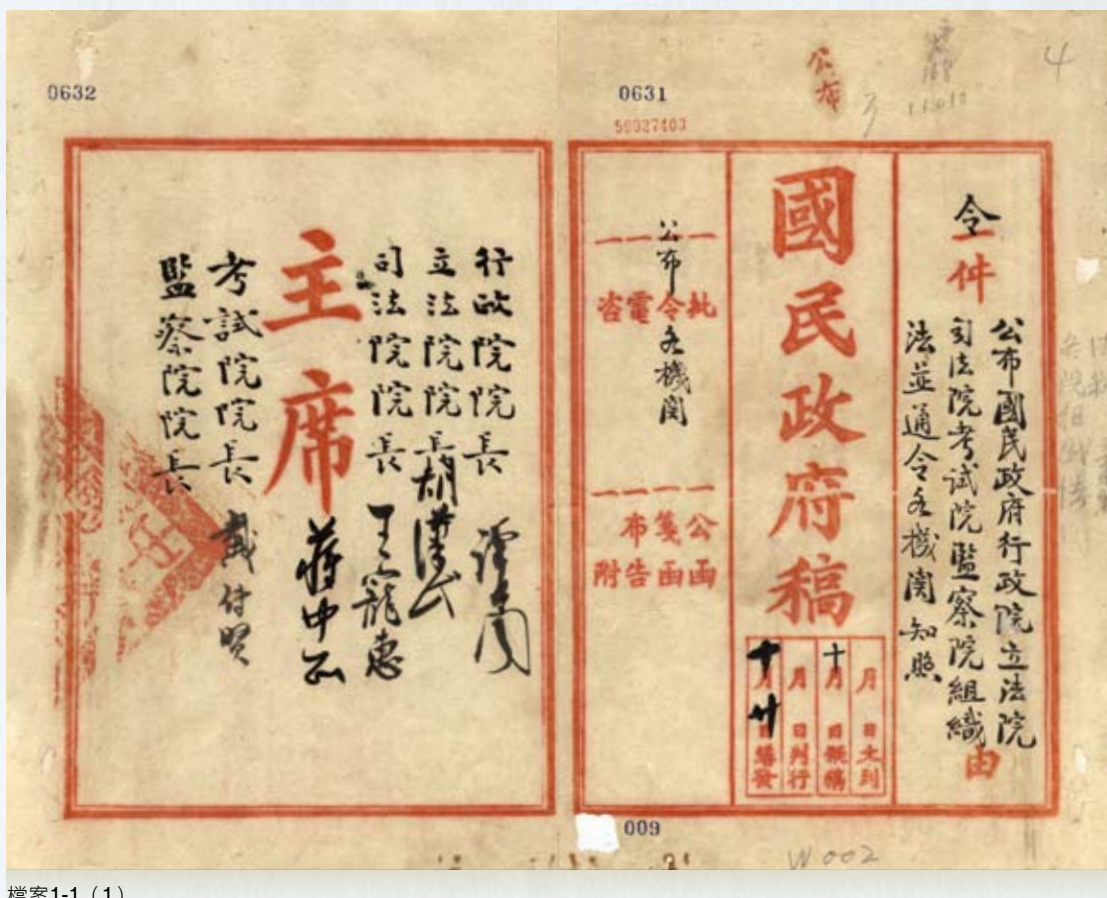 4
公布
3
0631
50027403
令
一件
公布國民政府行政院立法院
司法院考試院監察院組織
法並通令各機關知照
由
國民政府稿
月 日文到
十月 日擬稿
月 日判行
十月廿日繕發
批 令 電 咨
公布 各機關
公函 箋函 布告 附
009
W002
0632
行政院院長 譚
立法院院長 胡漢民
司法院院長 王寵惠
主席 蔣中正
考試院院長 戴傳賢
監察院院長
檔案1-1（1）